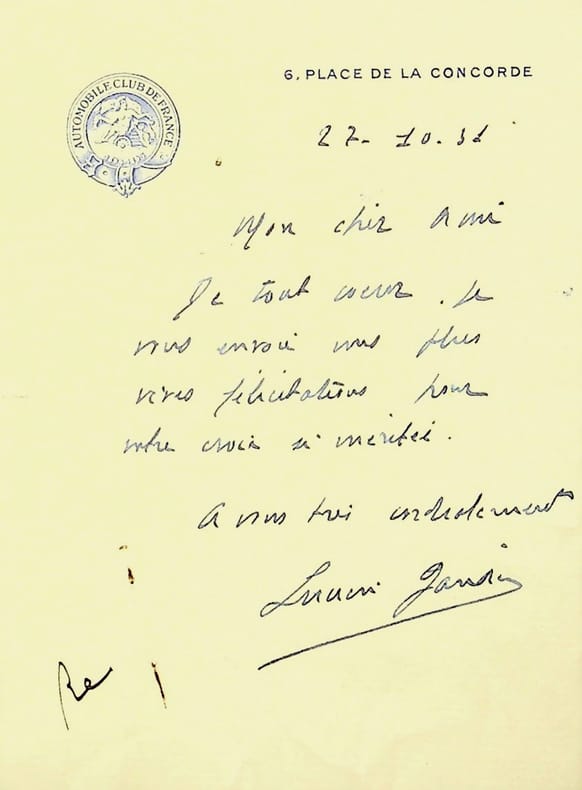 AUTOMOBILE CLUB DE FRANCE
6, PLACE DE LA CONCORDE
27-10.31
Mon cher Ami
De tout coeur, je
vous envoie mes plus
vives félicitations pour
votre croix si méritée.
A vous très cordialement
Lucien
Re